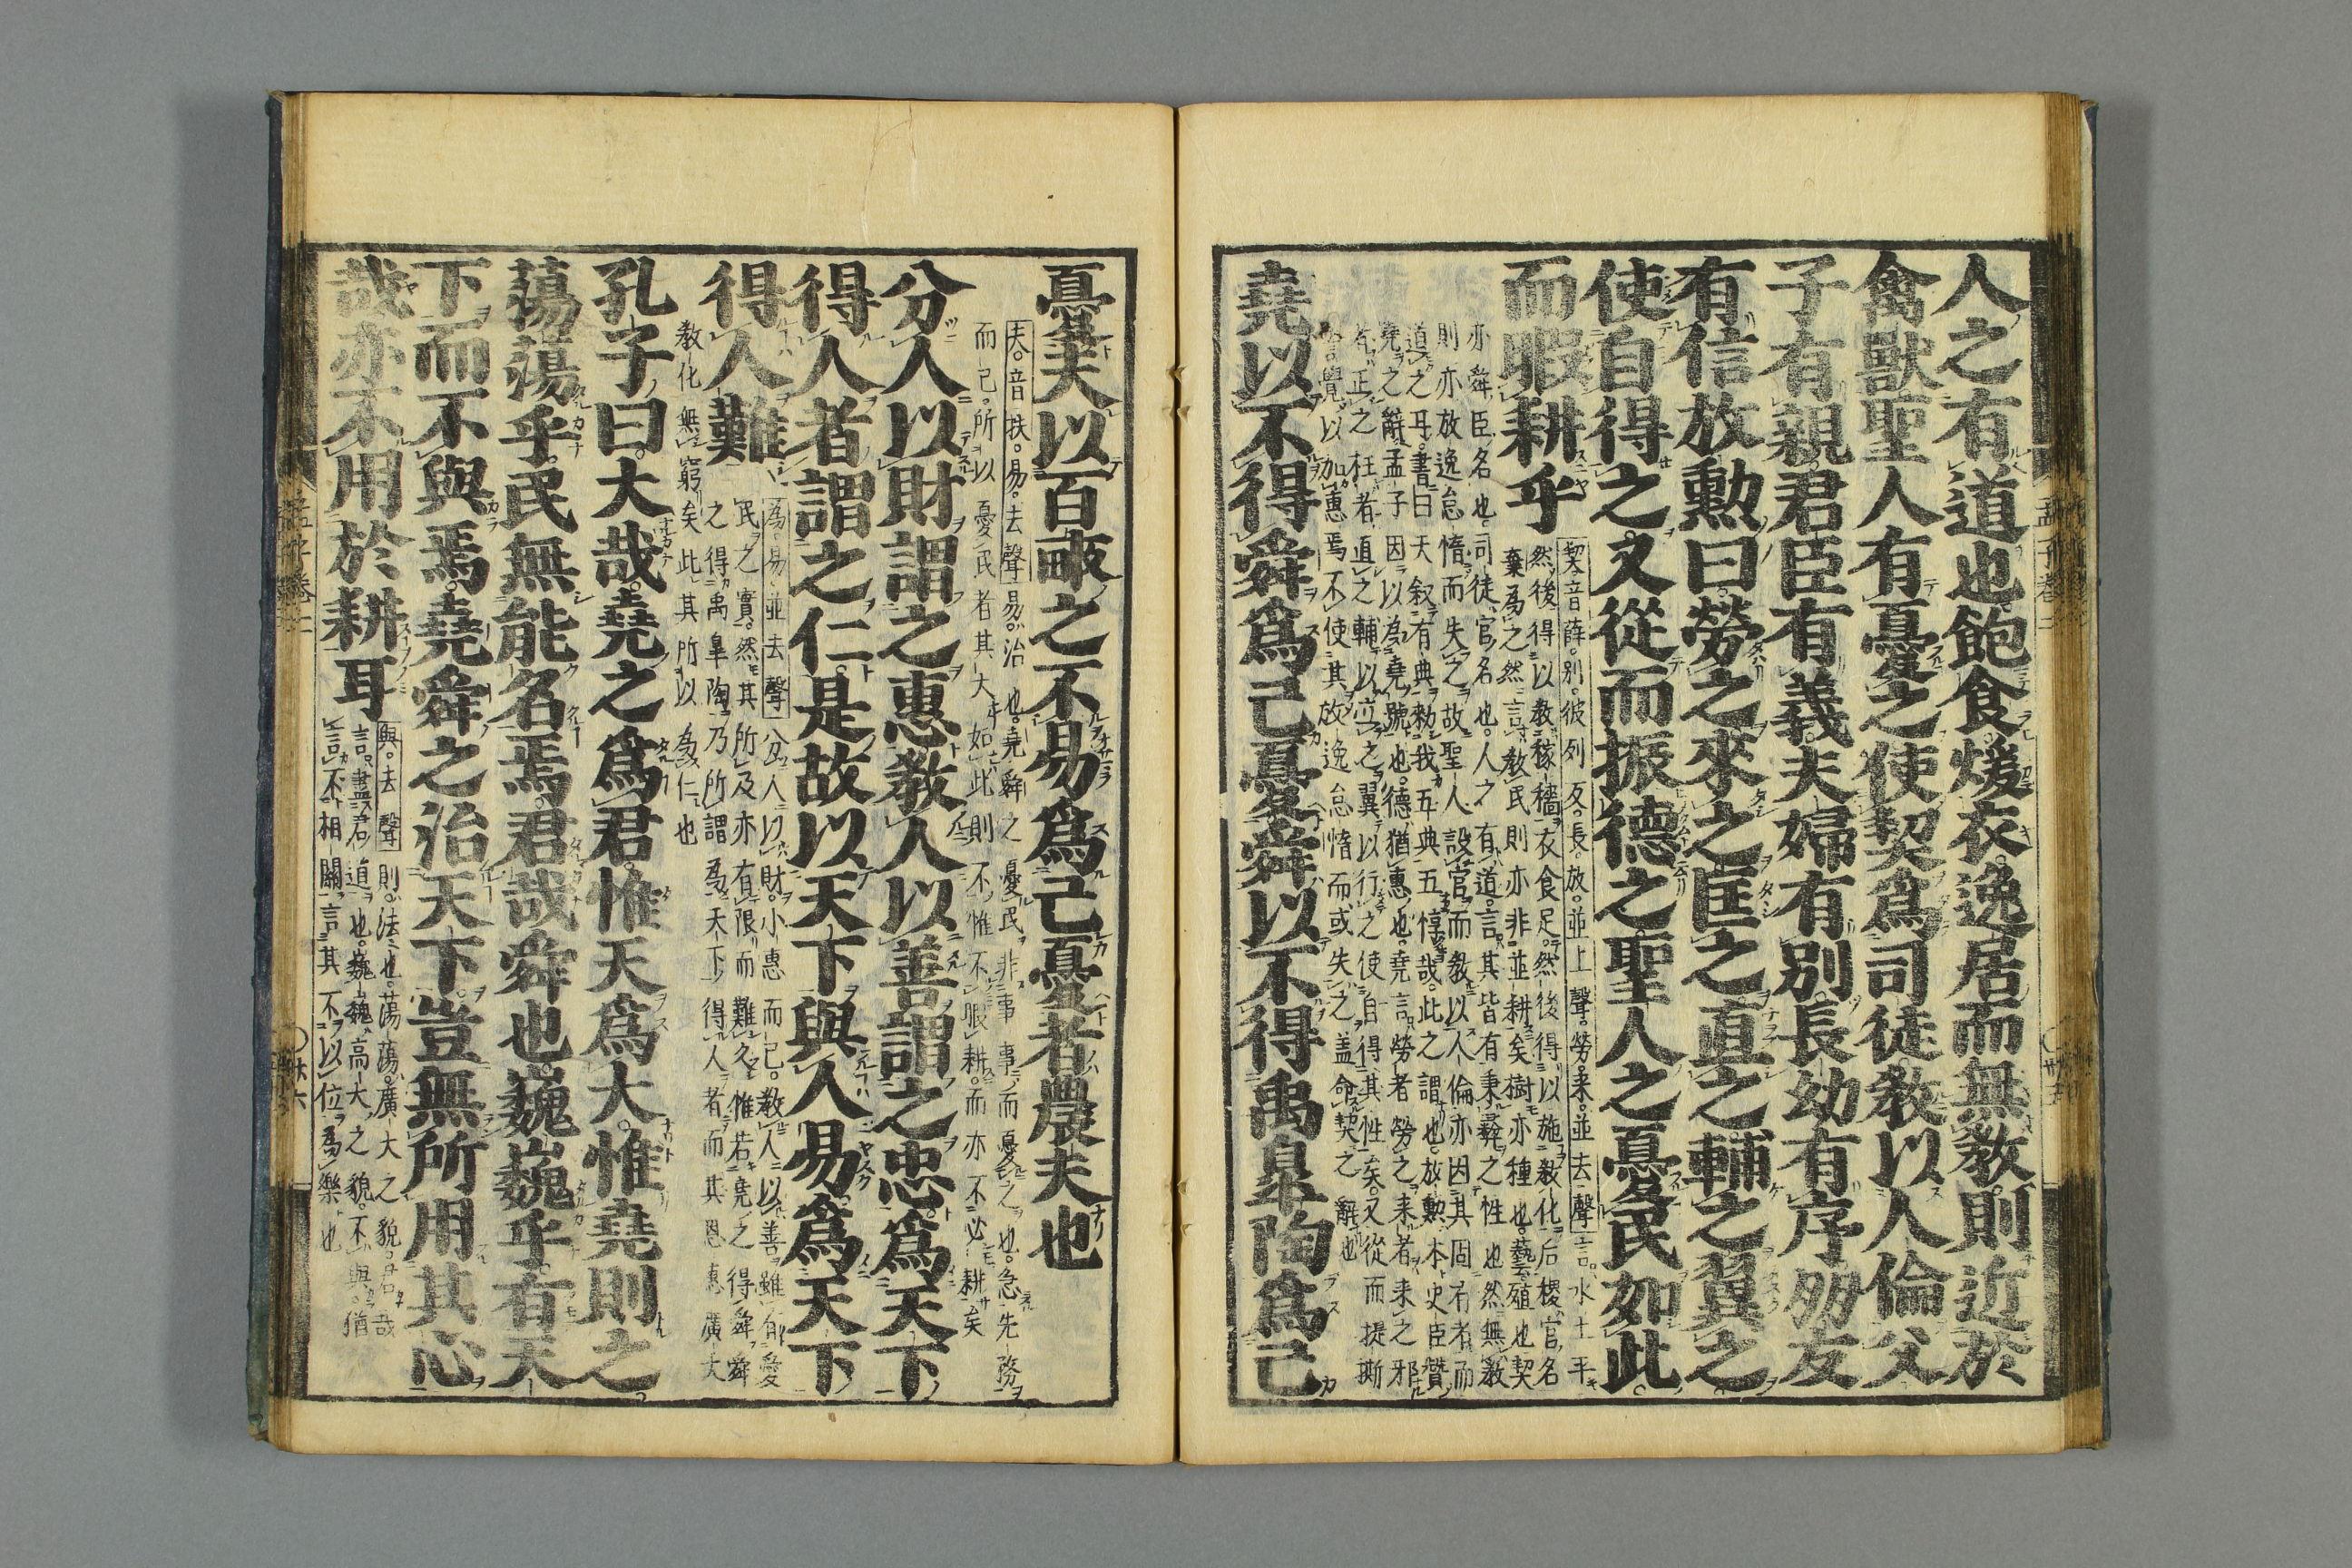 人之有道也飽食煖衣逸居而無教則近於
禽獸聖人有憂之使契爲司徒教以人倫父
子有親君臣有義夫婦有別長幼有序朋友
有信放勲曰勞之來之匡之直之輔之翼之
使自得之又從而振德之聖人之憂民如此
而暇耕乎
契音薛。別。彼列反。長。放。並上聲。勞。来。並去聲言水土平
然後得以教稼穡衣食足。然後得以施教化后稷官名
棄爲之然言教民則亦非並耕矣樹亦種也。藝殖也契
亦舜臣名也。司徒官名也。人之有道。言其皆有秉彝之性也然無教
則亦放逸怠惰而失之故聖人設官而教以人倫亦因其固有者而
道之耳。書曰天叙有典勑我五典五惇哉。此之謂也。放勲本史臣贊
堯之辭孟子因以為堯號也。德猶惠也。堯言勞者勞之来者来之邪
者正之枉者直之輔以立之翼以行之使自得其性矣。又從而提撕
警覺以加惠焉不使其放逸怠惰而或失之盖命契之辭也
堯以不得舜爲己憂舜以不得禹皐陶爲己
憂夫以百畝之不易爲己憂者農夫也
夫。音扶。易。去聲易治也。堯舜之憂民非事事而憂之也。急先務
而已。所以憂民者其大如此則不惟不暇耕。而亦不必耕矣
分人以財謂之惠教人以善謂之忠爲天下
得人者謂之仁是故以天下與人易爲天下
得人難
爲。易並去聲分人以財。小惠而已。教人以善雖有愛
民之實。然其所及亦有限而難久惟若堯之得舜舜
之得禹皐陶乃所謂爲天下得人者而其恩惠廣大
教化無窮矣此其所以為仁也
孔子曰大哉堯之爲君惟天爲大惟堯則之
蕩蕩乎民無能名焉君哉舜也巍巍乎有天
下而不與焉堯舜之治天下豈無所用其心
哉亦不用於耕耳
與。去聲則法也。蕩蕩廣大之貌。君哉
言盡君道也。巍巍高大之貌。不與猶
言不相關言其不以位爲樂也